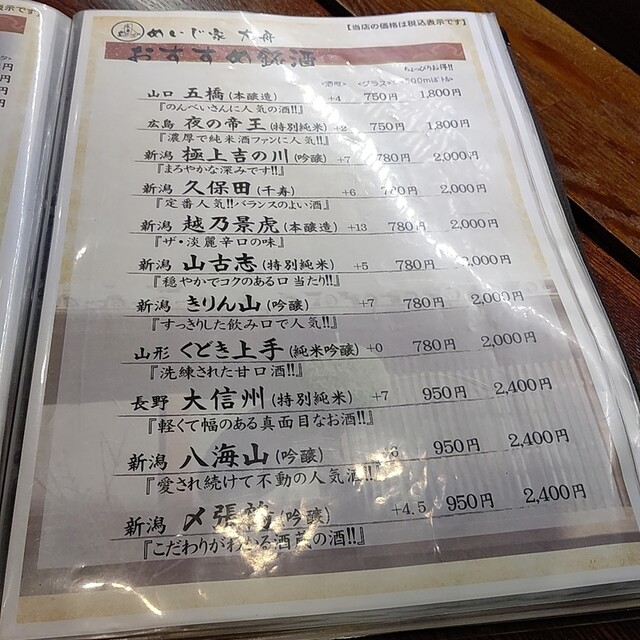 【当店の価格は税込表示です】
めいじ家 大舟
おすすめ銘酒
ちょっぴりお得!!
<酒度> <グラス>
山口 五橋(本醸造) +4 750円 1,800円
『のんべいさんに人気の酒!!』
広島 夜の帝王(特別純米) 750円 1,800円
『濃厚で純米酒ファンに人気!!』
新潟 極上吉の川(吟醸) +7 780円 2,000円
『まろやかな深みです!!』
新潟 久保田(千寿) +6 780円 2,000円
『定番人気!!バランスのよい酒』
新潟 越乃景虎(本醸造) +13 780円 2,000円
『ザ・淡麗辛口の味』
新潟 山古志(特別純米) +5 780円 2,000円
『穏やかでコクのある口当たり!!』
新潟 きりん山(吟醸) +7 780円 2,000円
『すっきりした飲み口で人気!!』
山形 くどき上手(純米吟醸) +0 780円 2,000円
『洗練された甘口酒!!』
長野 大信州(特別純米) +7 950円 2,400円
『軽くて幅のある真面目なお酒!!』
新潟 八海山(吟醸) 950円 2,400円
『愛され続けて不動の人気酒!!』
新潟 〆張鶴(吟醸) +4.5 950円 2,400円
『こだわりがわかる酒蔵の酒!!』